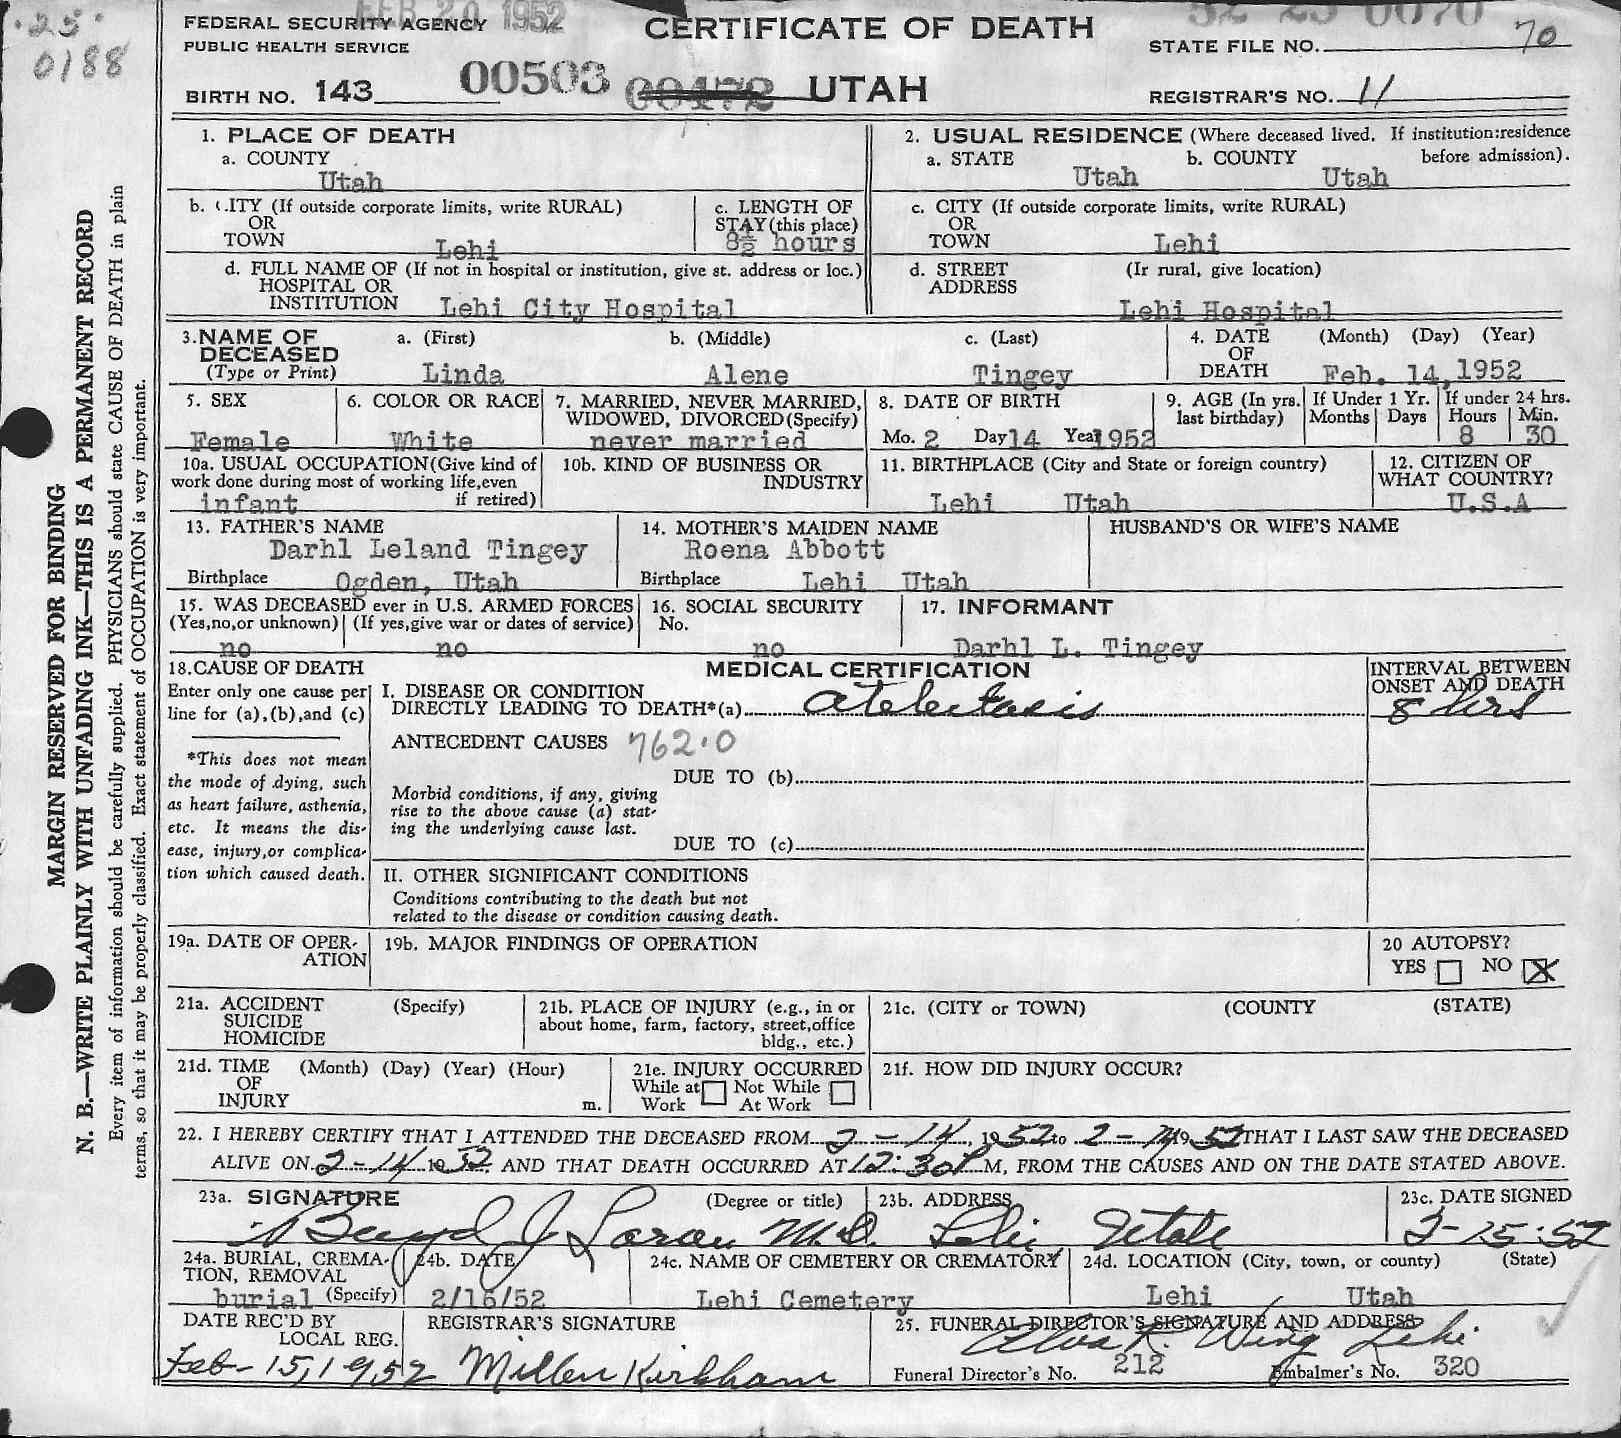 .25.
0188
FEB 20 1952
FEDERAL SECURITY AGENCY
PUBLIC HEALTH SERVICE
CERTIFICATE OF DEATH
52 25 0070
STATE FILE NO. 70
BIRTH NO. 143 00503 00472 UTAH
REGISTRAR'S NO. 11
MARGIN RESERVED FOR BINDING
N. B.—WRITE PLAINLY WITH UNFADING INK—THIS IS A PERMANENT RECORD
Every item of information should be carefully supplied. PHYSICIANS should state CAUSE OF DEATH in plain
terms, so that it may be properly classified. Exact statement of OCCUPATION is very important.
1. PLACE OF DEATH
a. COUNTY
Utah
b. CITY (If outside corporate limits, write RURAL)
OR
TOWN Lehi
c. LENGTH OF
STAY (this place)
8½ hours
d. FULL NAME OF (If not in hospital or institution, give st. address or loc.)
HOSPITAL OR
INSTITUTION Lehi City Hospital
2. USUAL RESIDENCE (Where deceased lived. If institution:residence
before admission).
a. STATE Utah b. COUNTY Utah
c. CITY (If outside corporate limits, write RURAL)
OR
TOWN Lehi
d. STREET (Ir rural, give location)
ADDRESS
Lehi Hospital
3. NAME OF
DECEASED
(Type or Print)
a. (First) b. (Middle) c. (Last)
Linda Alene Tingey
4. DATE (Month) (Day) (Year)
OF
DEATH Feb. 14, 1952
5. SEX
Female
6. COLOR OR RACE
White
7. MARRIED, NEVER MARRIED,
WIDOWED, DIVORCED (Specify)
never married
8. DATE OF BIRTH
Mo. 2 Day 14 Year 1952
9. AGE (In yrs. last birthday)
If Under 1 Yr.
Months Days
If under 24 hrs.
Hours Min.
8 30
10a. USUAL OCCUPATION (Give kind of
work done during most of working life, even
if retired)
infant
10b. KIND OF BUSINESS OR
INDUSTRY
11. BIRTHPLACE (City and State or foreign country)
Lehi Utah
12. CITIZEN OF
WHAT COUNTRY?
U.S.A
13. FATHER'S NAME
Darhl Leland Tingey
Birthplace Ogden, Utah
14. MOTHER'S MAIDEN NAME
Roena Abbott
Birthplace Lehi Utah
HUSBAND'S OR WIFE'S NAME
15. WAS DECEASED ever in U.S. ARMED FORCES
(Yes, no, or unknown) (If yes, give war or dates of service)
no no
16. SOCIAL SECURITY
No.
no
17. INFORMANT
Darhl L. Tingey
18. CAUSE OF DEATH
Enter only one cause per
line for (a), (b), and (c)
*This does not mean
the mode of dying, such
as heart failure, asthenia,
etc. It means the dis-
ease, injury, or complica-
tion which caused death.
MEDICAL CERTIFICATION
INTERVAL BETWEEN
ONSET AND DEATH
I. DISEASE OR CONDITION
DIRECTLY LEADING TO DEATH*(a) Atelectasis
8 hrs
ANTECEDENT CAUSES 762.0
DUE TO (b)
Morbid conditions, if any, giving
rise to the above cause (a) stat-
ing the underlying cause last.
DUE TO (c)
II. OTHER SIGNIFICANT CONDITIONS
Conditions contributing to the death but not
related to the disease or condition causing death.
19a. DATE OF OPER-
ATION
19b. MAJOR FINDINGS OF OPERATION
20 AUTOPSY?
YES NO X
21a. ACCIDENT (Specify)
SUICIDE
HOMICIDE
21b. PLACE OF INJURY (e.g., in or
about home, farm, factory, street, office
bldg., etc.)
21c. (CITY or TOWN) (COUNTY (STATE)
21d. TIME (Month) (Day) (Year) (Hour)
OF
INJURY m.
21e. INJURY OCCURRED
While at Not While
Work At Work
21f. HOW DID INJURY OCCUR?
22. I HEREBY CERTIFY THAT I ATTENDED THE DECEASED FROM 2-14, 1952 to 2-14 1952 THAT I LAST SAW THE DECEASED
ALIVE ON 2-14 1952 AND THAT DEATH OCCURRED AT 12:30 P M, FROM THE CAUSES AND ON THE DATE STATED ABOVE.
23a. SIGNATURE (Degree or title)
Boyd J Larson M.D.
23b. ADDRESS
Lehi Utah
23c. DATE SIGNED
2-15-52
24a. BURIAL, CREMA-
TION, REMOVAL
burial (Specify)
24b. DATE
2/16/52
24c. NAME OF CEMETERY OR CREMATORY
Lehi Cemetery
24d. LOCATION (City, town, or county) (State)
Lehi Utah
DATE REC'D BY
LOCAL REG.
Feb-15, 1952
REGISTRAR'S SIGNATURE
Millen Kirkham
25. FUNERAL DIRECTOR'S SIGNATURE AND ADDRESS
Elva R. Wing Lehi
Funeral Director's No. 212 Embalmer's No. 320